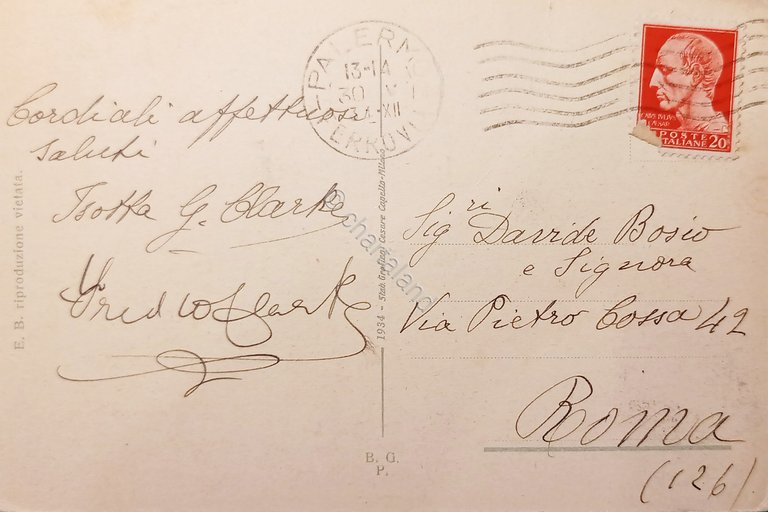 Cordiali affettuosi
saluti
Isotta G. Clarke
Fred W Clark
E. B. riproduzione vietata.
1934 - Stab. Grafico Cesare Capello - Milano
B. G.
P.
PALERMO
13-14
30
34-XII
FERROVIA
POSTE
ITALIANE 20
Sigri Davide Bosio
e Signora
Via Pietro Cossa 42
Roma
(126)
© charialand